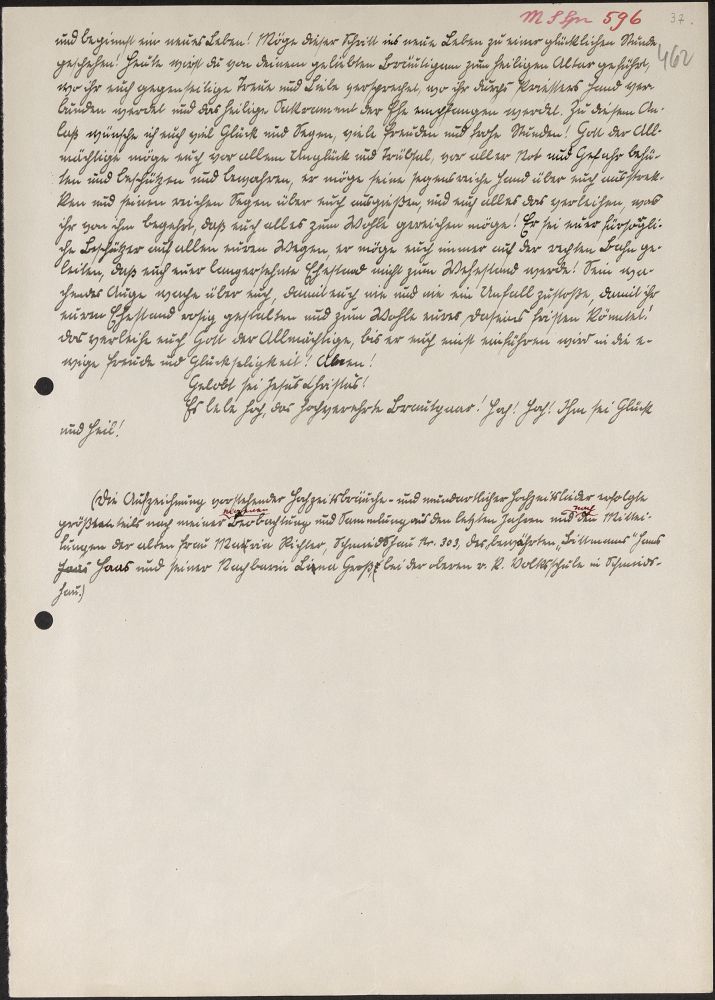 M S Gn 596 37.
462
und beginnst ein neues Leben! Möge dieser Schritt ins neue Leben zu einer glücklichen Stunde
geschehen! Heute wirst du von deinem geliebten Bräutigam zum heiligen Altar geführt,
wo ihr euch gegenseitige Treue und Liebe versprechet, wo ihr durchs Priesters Hand ver-
bunden werdet und das heilige Sakrament der Ehe empfangen werdet. Zu diesem An-
laß wünsche ich euch viel Glück und Segen, viele Freuden und frohe Stunden! Gott der All-
mächtige möge euch vor allem Unglück und Trübsal, vor aller Not und Gefahr behü-
ten und beschützen und bewahren, er möge seine segensreiche Hand über euch ausstrek-
ken und seinen reichen Segen über euch ausgießen, und euch alles das verleihen, was
ihr von ihm begehrt, daß euch alles zum Wohle gereichen möge! Er sei euer fürsorgli-
che Beschützer auf allen euren Wegen, er möge euch immer auf der rechten Bahn ge-
leiten, daß euch euer langersehnte Ehestand nicht zum Wehestand werde! Sein wa-
chendes Auge wache über euch, damit euch nie und nie ein Unfall zustoße, damit ihr
euren Ehestand rosig gestalten und zum Wohle eures Daseins fristen könntet!
das verleihe euch Gott der Allmächtige, bis er euch einst einführen wird in die e-
wige Freude und Glückseligkeit! Amen!
Gelobt sei Jesus Christus!
Es lebe hoch, das hochverehrte Brautpaar! Hoch! Hoch! Ihm sei Glück
und Heil!
(Die Aufzeichnung vorstehender Hochzeitsbräuche- und mundartlicher Hochzeitslieder erfolgte
größtenteils nach meiner eigenen Beobachtung und Sammlung aus den letzten Jahren und nach den Mittei-
lungen der alten Frau Maria Richter, Schmiedshau Nr. 303, des bewährten "Bittmanns" Hans
Haas und seiner Nachbarin Lina Groß, bei der oberen r. k. Volksschule in Schmieds-
hau.)